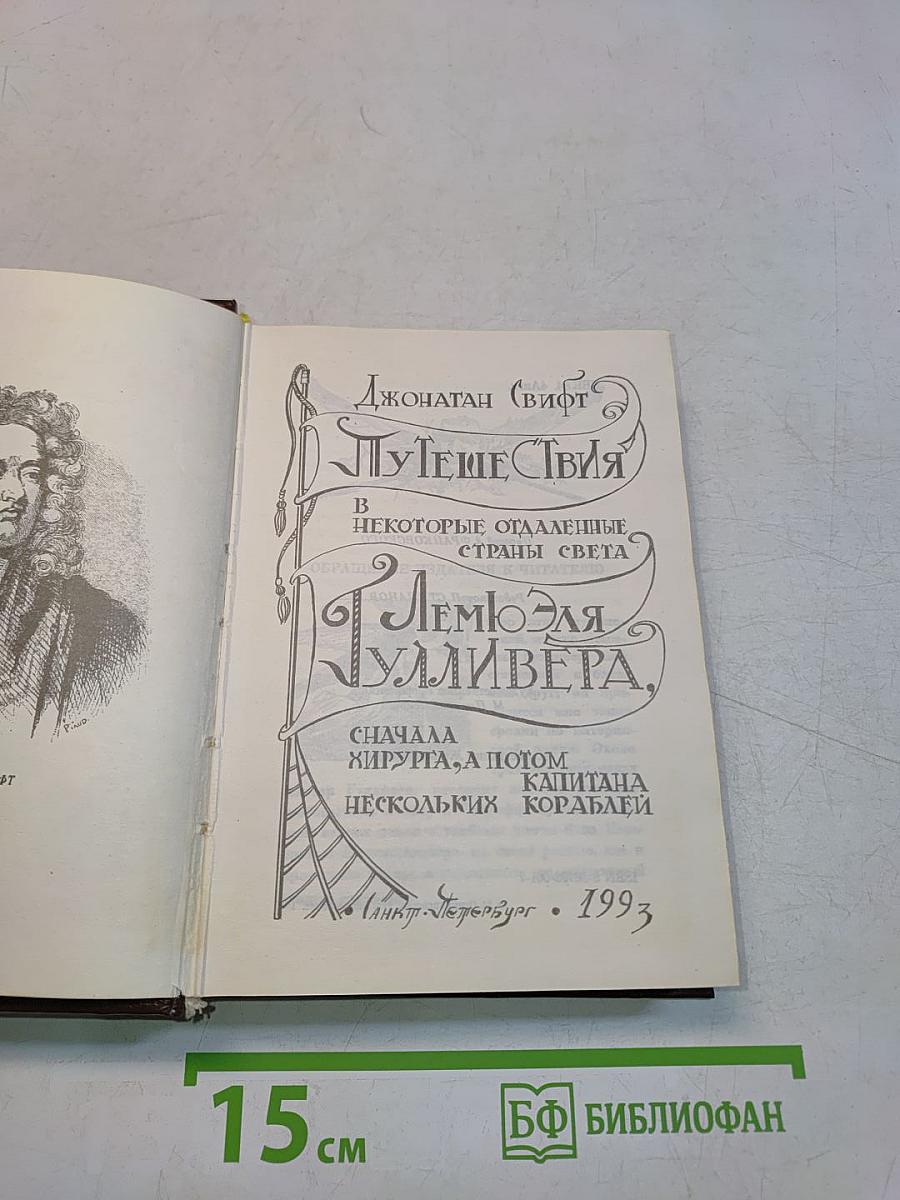 Джонатан Свифт
Путешествия
в
некоторые отдаленные
страны света
Лемюэля
Гулливера,
сначала
хирурга, а потом
капитана
нескольких кораблей
• Санкт-Петербург • 1993
Pinud.
ФТ
15 см
БФ БИБЛИОФАН